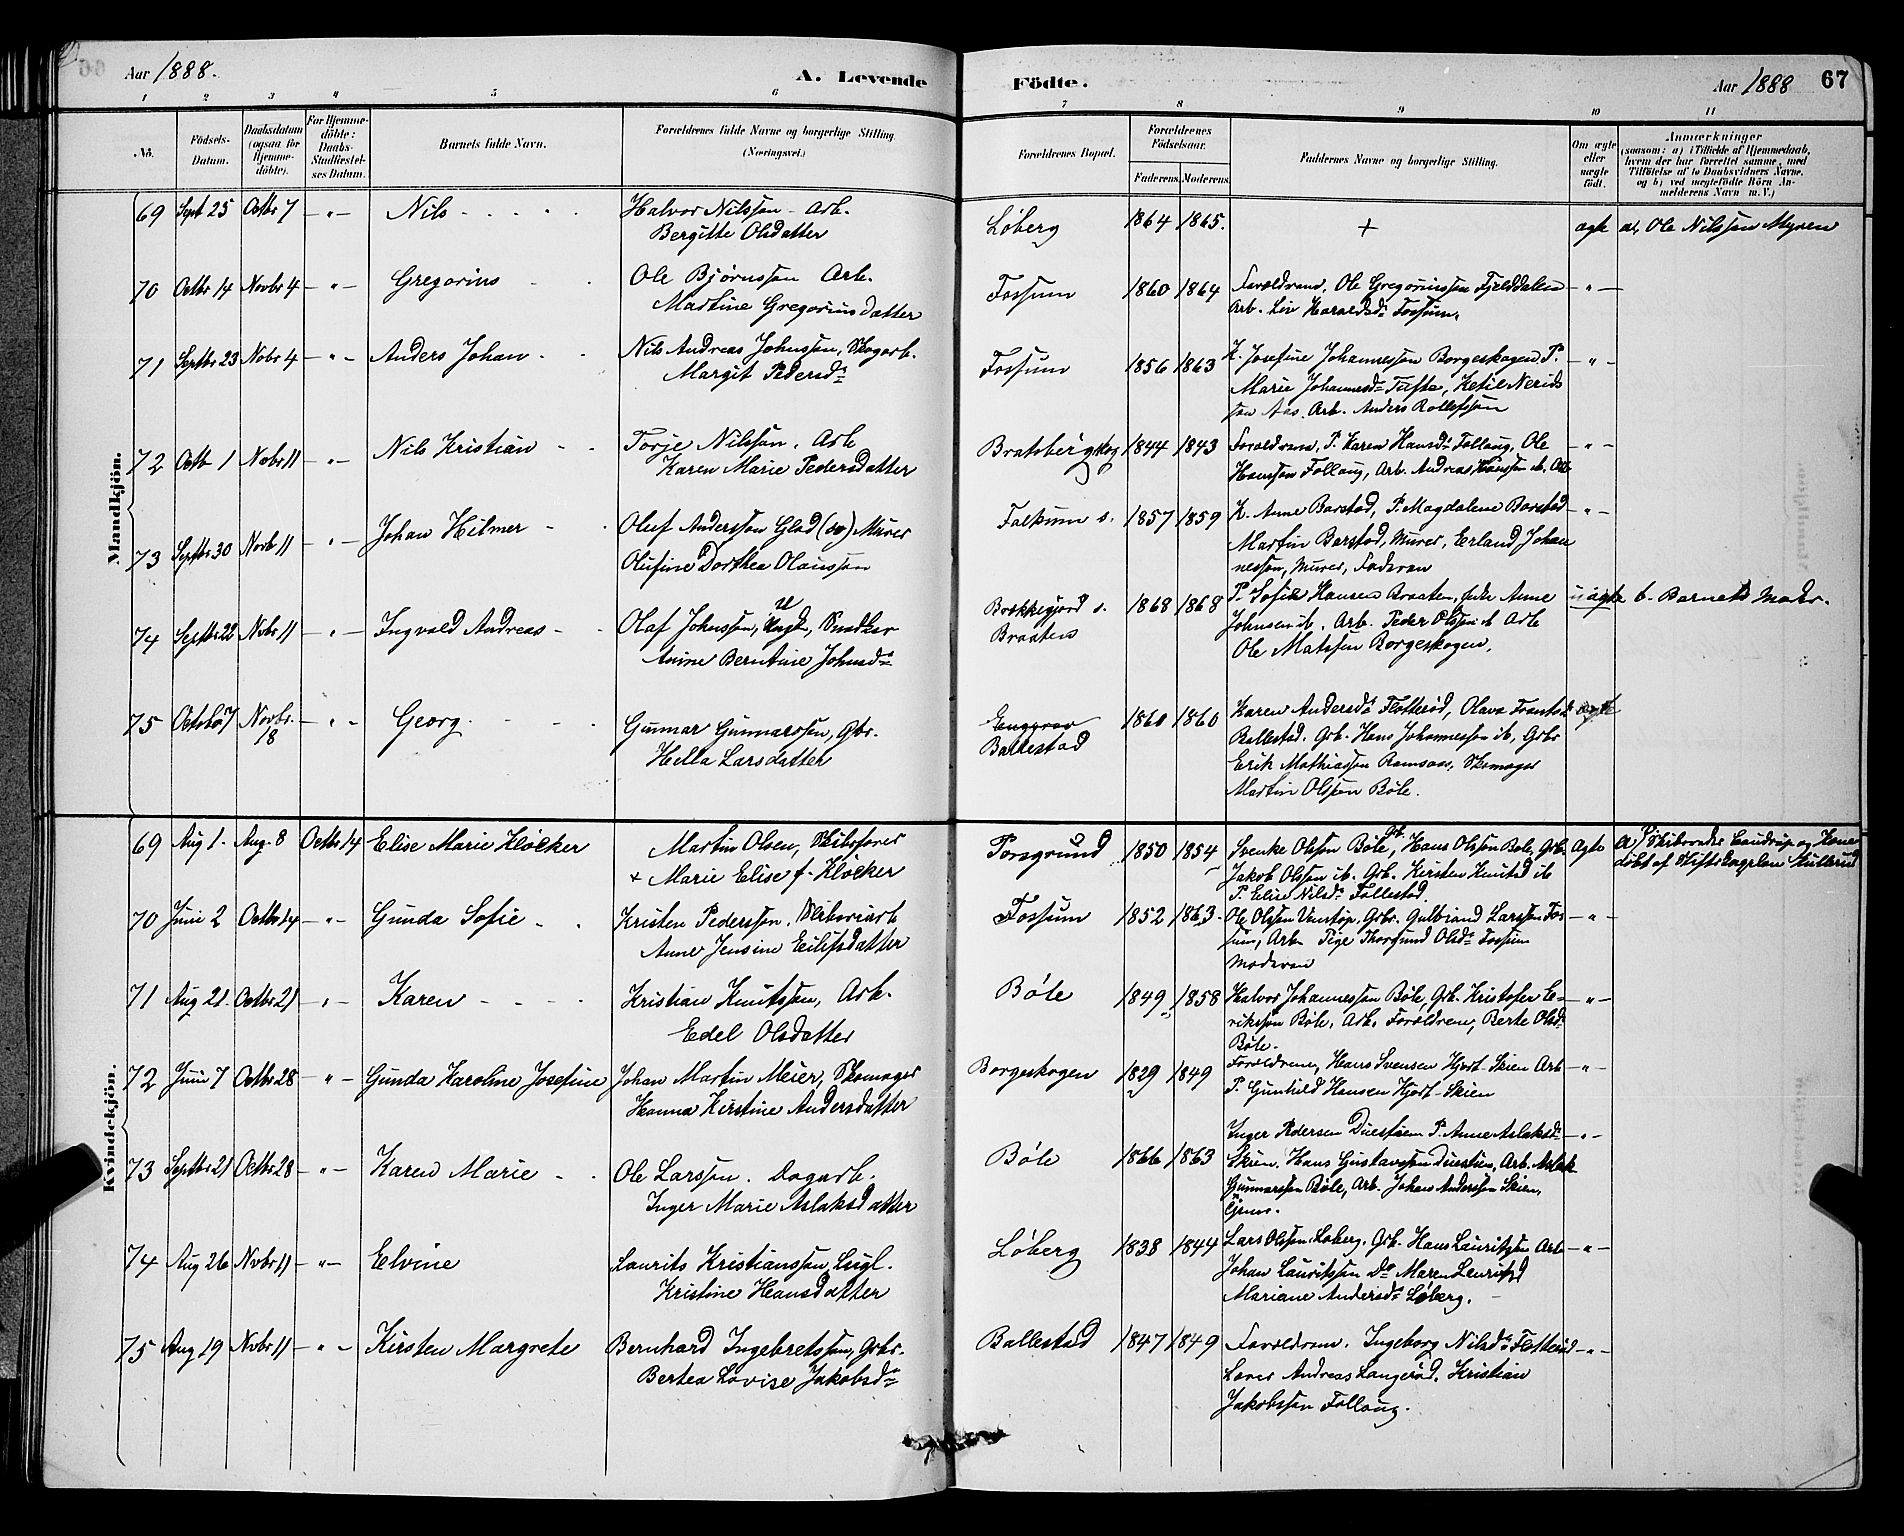 Aar 1888.
A. Levende
Födte.
Aar 1888
67
1 2 3 4 5 6
7 8 9 10 11
No. Födsels-Datum. Daabsdatum (ogsaa for Hjemmedöbte). For Hjemmedöbte: Daabs-Stadfæstelses Datum. Barnets fulde Navn. Forældrenes fulde Navne og borgerlige Stilling (Næringsvei.)
Forældrenes Bopæl. Forældrenes Födselsaar. Faderens. Moderens. Faddernes Navne og borgerlige Stilling. Om ægte eller uægte födt. Anmærkninger (saasom: a) i Tilfælde af Hjemmedaab, hvem der har forrettet samme, med Tilföielse af to Daabsvidners Navne, og b) ved uægtefödte Börn Anmelderens Navn m. V.)
Mandkjön.
69 Sept 25 Octbr 7 - " - Nils - - - - Halvor Nilssøn - Arb.
Bergitte Olsdatter
Løberg 1864 1865. + ægte a, Ole Nilssøn Myren
70 Octbr 14 Novbr 4 - " - Gregorius - - Ole Bjørnssøn Arb.
Martine Gregoriusdatter
Fossum 1860 1864 Forældrene, Ole Gregoriussøn Fjelddalen - " -
Arb. Liv Haraldsdr Fossum.
71 Septbr 23 Nobr 4 - " - Anders Johan - - Nils Andreas Johnssøn, Skogarb.
Margit Pedersdr
Fossum 1856 1863 K. Josefine Johannessøn Borgeskogen P. - " -
Marie Johannesdr Tufte, Ketil Nerids
søn Aas. Arb. Anders Rollefssøn
72 Octb 1 Nobr 11 - " - Nils Kristian - - Torje Nilssøn. Arb
Karen Marie Pedersdatter
Bratsbergskog 1844 1843 Forældrene, P. Karen Hansdr Follaug, Ole - " -
Hanssøn Follaug, Arb. Andreas Hanssøn ib. Arb
73 Septbr 30 Novb 11 - " - Johan Hilmer - - Oluf Anderssøn Glad (sv) Murer
Olufine Dorthea Olaussøn
Falkum s. 1857 1859 K. Anne Barstad, P. Magdalene Barstad - " -
Martin Barstad, Murer, Erland Johan
nessøn, Murer, Faderen
74 Septbr 22 Nobr 11 - " - Ingvald Andreas - - Olaf Johnssøn, Ungk, Snedker
Anine Berntine Johnsdr
Brækkegjord s. Braatens 1868 1868 P. Sofie Hansen Braaten, Anne uægte b. Barnets Moder.
Johnsen ib. Arb. Peder Olssøn ib Arb
Ole Matssøn Borgeskogen.
75 Octobr 7 Novbr. 18 - " - Georg - - - - Gunnar Gunnarssøn, Gbr.
Hella Larsdatter
Enggrav
Ballestad 1860 1860 Karen Andersdr Flotterød, Olava ægte
Ballestad. Grb. Hans Johannessøn ib, Grbr
Erik Mathiassøn Ramsaas, Skomager
Martin Olssøn Bøle.
Kvindekjön.
69 Aug 1. Aug. 8 Octbr 14 Elise Marie Kløcker Martin Olsen, Skibsfører
+ Marie Elise f. Kløcker
Porsgrund 1850 1854 Svenke Olssøn Bøle, Gb. Hans Olssøn Bøle, Grb. Ægte a/ Skibsreder Caudrup og Kone
døbt af Stiftskapelan Kullerud
Jakob Olssøn ib. Grb. Kirsten Knutsd ib
P. Elise Nilsdr Follestad.
70 Juni 2 Octbr 14 - " - Gunda Sofie - - Kristen Pederssøn. Sliberiarb
Anne Jensine Eilifsdatter
Fossum 1852 1863. Ole Olssøn Venstøp, Grbr. Gulbrand Larssøn Fos- - " -
sum, Arb Pige Thorgund Olsdr Fossum
Moderen
71 Aug 21. Octbr 21 - " - Karen - - - - Kristian Knutssøn, Arb.
Edel Olsdatter
Bøle 1849 1858 Halvor Johannessøn Bøle, Grb. Kristofer E- - " -
rikssøn Bøle, Arb. Forældrene, Berte Olsdr
Bøle.
72 Juni 7 Octbr 28 - " - Gunda Karoline Josefine Johan Martin Meier, Skomager
Hanna Kirstine Andersdatter
Borgeskogen 1829 1849 Forældrene, Hans Svensen Hjort Skien Arb - " -
P. Gunhild Hansen Hjort Skien
73 Septbr 21 Octbr 28 - " - Karen Marie - - Ole Larssøn. Dagarb.
Inger Marie Aslaksdatter
Bøle 1866 1863 Inger Pedersen Duestien P. Anne Aslaksdr - " -
Skien. Hans Gustavssøn Duestien, Arb. Aslak
Gunnarssøn Bøle, Arb. Johan Anderssøn Skien,
74 Aug 26 Nobr 11 - " - Elvine Laurits Kristianssøn Lugl.
Kristine Hansdatter
Løberg 1838 1844 Lars Olssøn Løberg. Grb. Hans Lauritssøn Arb - " -
Johan Lauritssøn Do Maren Lauritsd
Mariane Andersdr Løberg.
75 Aug 19 Nobr 11 - " - Kirsten Margrete Bernhard Ingebretssøn, Grbr.
Bertea Lovise Jakobsdr
Ballestad 1847 1849 Forældrene. Ingeborg Nilsdr Flotterød - " -
Lover Andreas Langerød. Kristian
Jakobssøn Follaug.